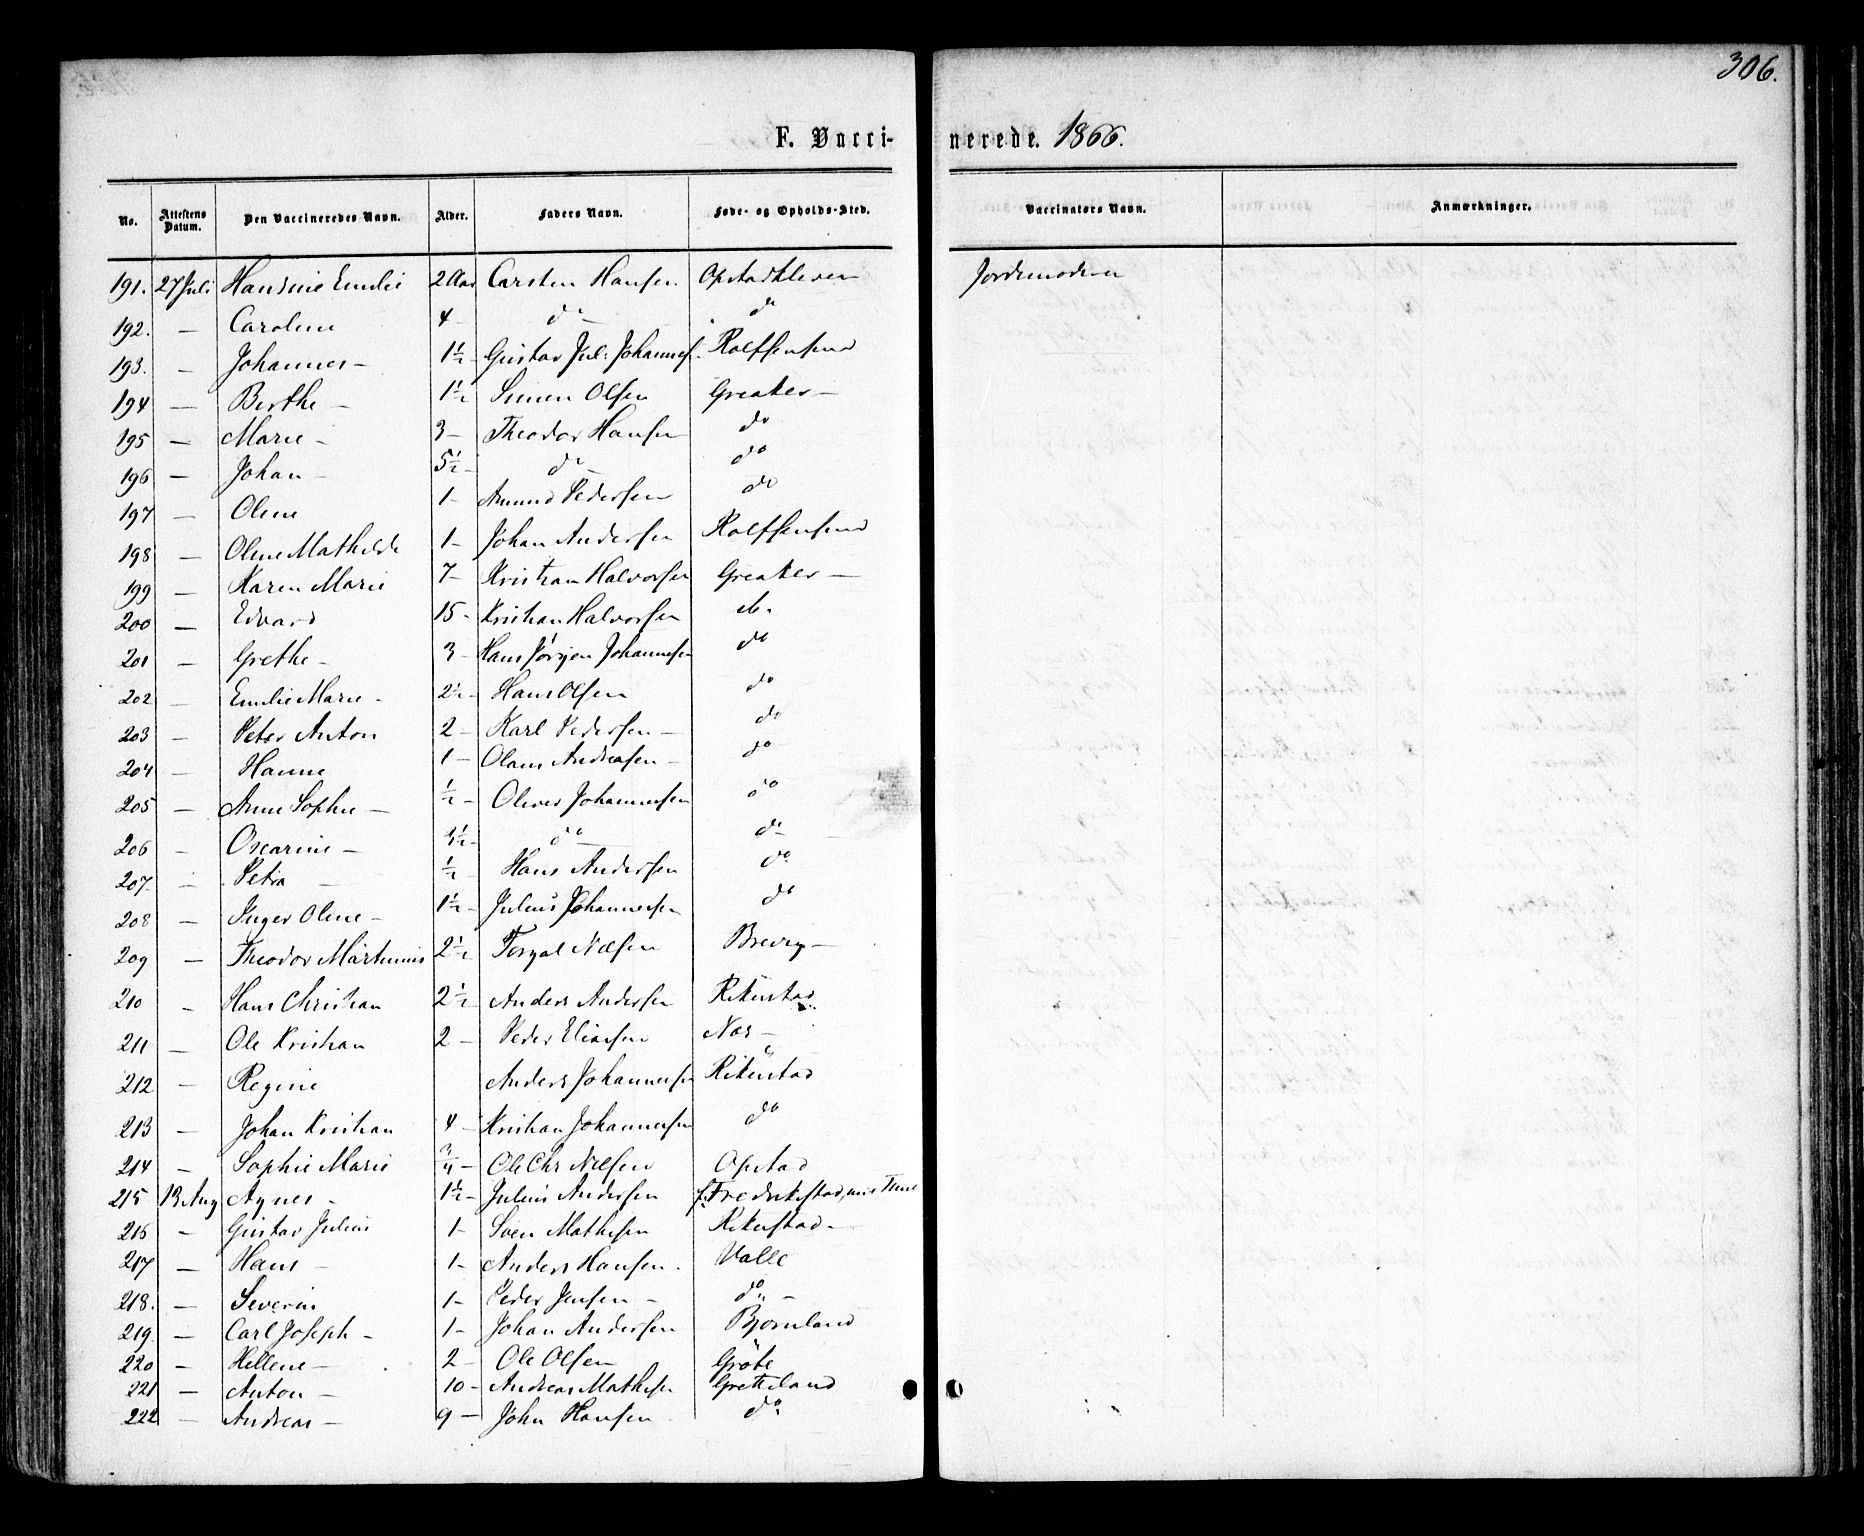 306.
F. Vacci-nerede. 1866.
No. Attestens Datum. Den Vaccineredes Navn. Alder. Faders Navn. Føde- og Opholds-Sted. Vaccinators Navn. Anmærkninger.
191. 27 Juli Hansine Emilie 2 Aar Carsten Hansen Opstadkleven Jordemoderen
192. — Caroline 4 — do — do
193. — Johannes — 1½ Gustav Jul: Johannes. Rolffsensund
194 — Berthe — 1½ Simen Olsen Greaker —
195 — Marie — 3 — Theodor Hansen do
196 — Johan — 5½ — do — do
197 — Oline 1 — Amund Pedersen do
198 — Oline Mathilde 1 — Johan Andersen Rolffsensund
199 — Karen Marie 7 — Kristian Halvorsen Greaker —
200 — Edvard 15 — Kristian Halvorsen do.
201 — Grethe — 3 — Hans Jørgen Johannesen do
202 — Emilie Marie — 2½ — Hans Olsen do
203 — Peter Anton 2 — Karl Pedersen — do
204 — Hanne 1 — Olaus Andreasen — do
205 — Anne Sophie — ½ — Oliver Johannesen do
206 — Oscarine — 3½ — do — do
207. — Petra — ½ — Hans Andersen do
208 — Inger Oline — 1½ — Julius Johannesen do
209 — Theodor Martinius 2½ — Torgal Nilsen Brevig —
210 — Hans Christian 2½ — Anders Andersen Rikustad
211 — Ole Kristian 2 — Peder Eliasen Nes —
212 — Regine Anders Johannesen Rikustad
213 — Johan Kristian 4 — Kristian Johannesen do
214 — Sophie Marie ¾ — Ole Chr Nilsen Opstad
215 13 Aug Agnes — 1½ — Julius Andersen f. Fredrikstad,
216 — Gustav Julius 1 — Sven Mathisen Rikustad —
217 — Hans — 1 — Anders Hansen. Valle
218. — Severin 1 — Peder Jensen — do —
219 — Carl Joseph — 1 — Johan Andersen Bjørnland
220 — Hellene — 2 — Ole Olsen
221 — Anton — 10 — Andreas Mathisen Gretteland
222 — Andreas — 9 — John Hansen do